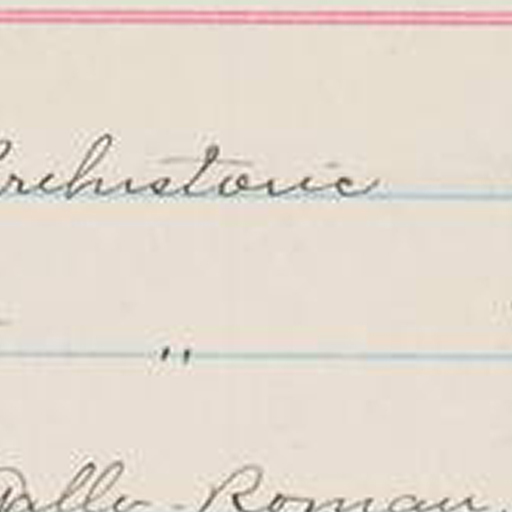 Prehistoric
"
Gallo-Roman